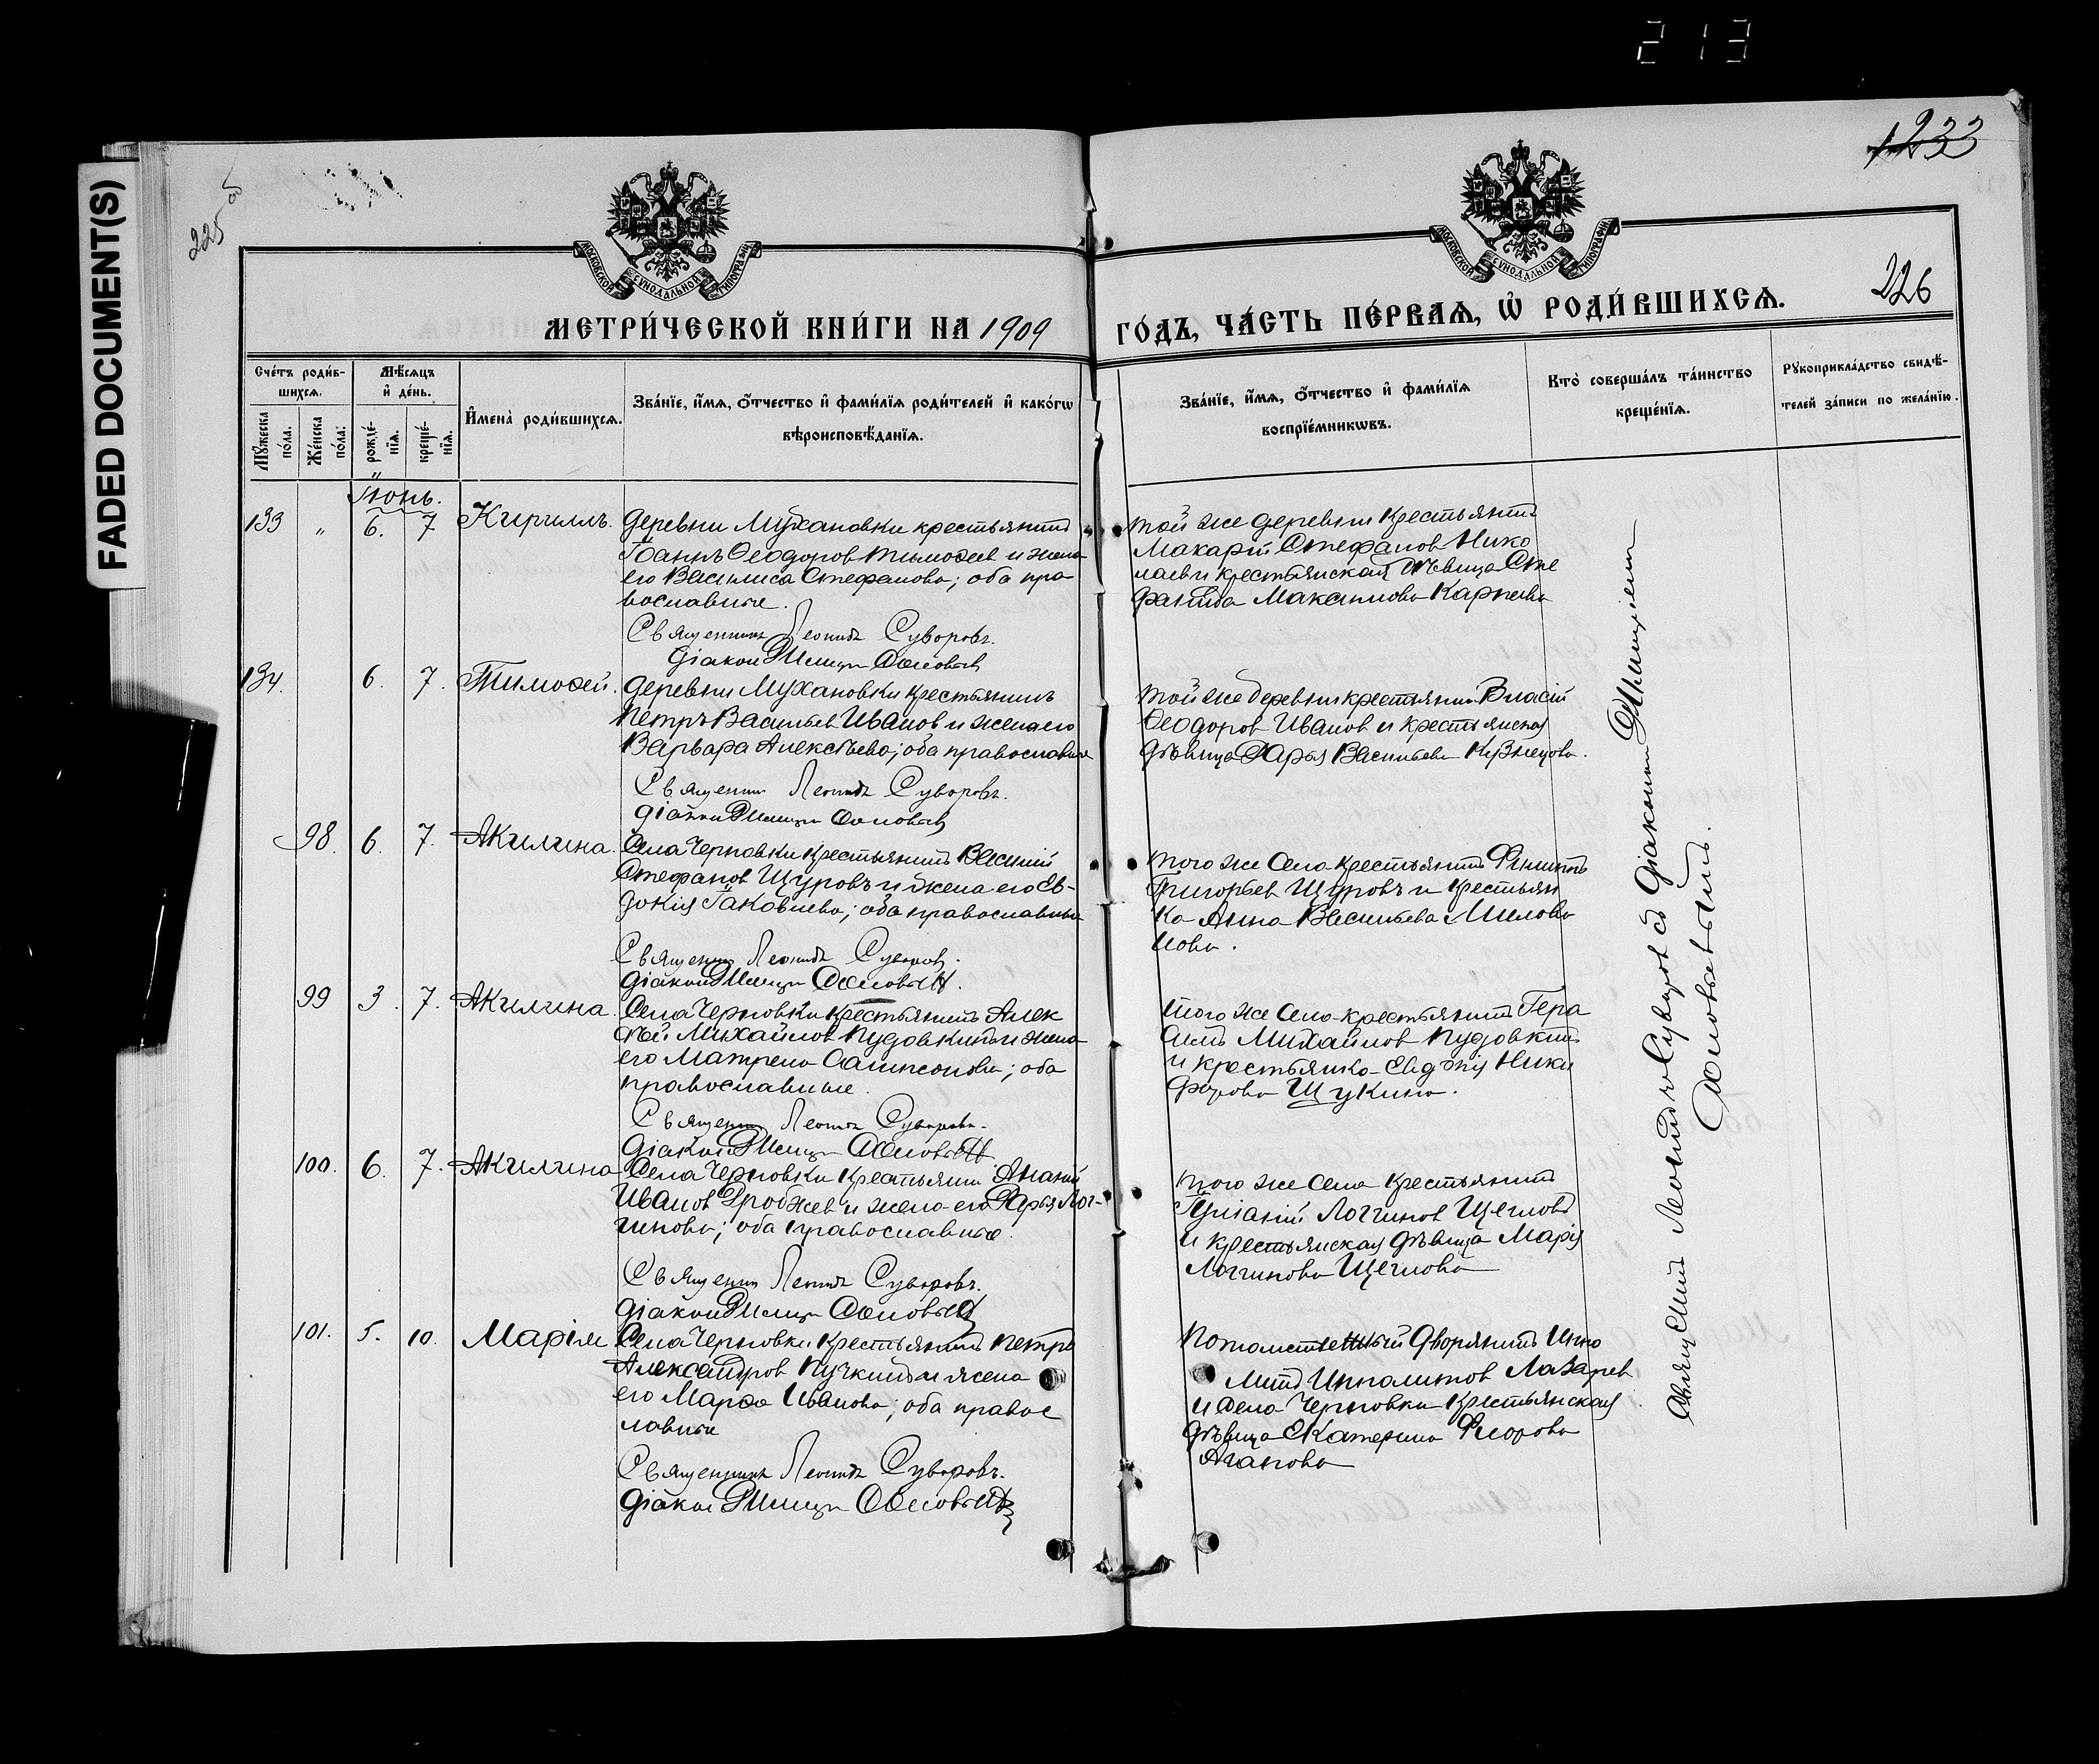 213
FADED DOCUMENT(S)
225 об
1233
226
МОСКОВСКОЙ СѴНОДАЛЬНОЙ ТИПОГРАФІИ
МОСКОВСКОЙ СѴНОДАЛЬНОЙ ТИПОГРАФІИ
МЕТРИ́ЧЕСКОЙ КНИ́ГИ НА 1909
ГО́ДЪ, ЧА́СТЬ ПЕ́РВАѦ, Ѡ҆ РОДИ́ВШИХСѦ.
Сче́тъ роди́в-
шихсѧ.
Мꙋ́жеска по́ла.
Же́нска по́ла:
Мѣ́сѧцъ
и҆ де́нь.
рожде́-
нїѧ.
креще́-
нїѧ.
И҆мена̀ роди́вшихсѧ.
Зва́нїе, и҆́мѧ, ѻ҆́тчество и҆ фами́лїѧ роди́телей и҆ како́гѡ
вѣроисповѣ́данїѧ.
Зва́нїе, и҆́мѧ, ѻ҆́тчество и҆ фами́лїѧ
воспрїе́мникѡвъ.
Кто̀ соверша́лъ та́инство
креще́нїѧ.
Рꙋкоприкла́дство свидѣ́-
телей за́писи по жела́нїю.
Іюнь.
133 " 6. 7 Кириллъ. Деревни Мухановки крестьянинъ
Іоаннъ Ѳеодоров Тимоѳеев и жена
его Василиса Стефанова; оба пра
вославные.
Священникъ Леонидъ Суворовъ.
Діакон
той же деревни крестьянинъ
Макарій Стефанов Нико
лаев и крестьянская дѣвица Сте
фанида Максимова Карпова
134. 6. 7. Тимоѳей. Деревни Мухановки крестьянинъ
Петръ Васильев Иванов и жена его
Варвара Алексѣева; оба православные
Священник Леонидъ Суворовъ.
Діакон
той же деревни крестьянинъ Власій
Ѳеодоров Иванов и крестьянская
дѣвица Дарья Васильева Кузнецова.
98. 6. 7. Акилина. Села Черновки крестьянинъ Василій
Стефанов Щуровъ и жена его Ев-
докія Іаковлева; оба православные
Священник Леонидъ Суворов.
Діакон
того же села крестьянинъ Филиппъ
Григорьев Щуровъ и крестьян
ка Анна Васильева Милова
нова.
99 3. 7. Акилина. Села Черновки крестьянинъ Алек
сѣй Михайлов Пудовкинъ и жена
его Матрена Сампсонова; оба
православные.
Священник Леонидъ Суворовъ.
Діакон
того же села крестьянинъ Гера
симъ Михайлов Пудовкин
и крестьянка Евдокія Ники
форова Щукина.
100. 6. 7. Акилина Села Черновки крестьянин Ананій
Иванов Дробжев и жена его Дарья Лог-
гинова; оба православные.
Священник Леонидъ Суворовъ.
Діакон
того же села крестьянинъ
Іуліаній Логгинов Щегловъ
и крестьянская дѣвица Марія
Логгинова Щеглова
101. 5. 10. Маріам Села Черновки крестьянинъ Петръ
Александров Пучкинъ и жена
его Марѳа Иванова; оба правос
лавные
Священникъ Леонидъ Суворовъ.
Діакон
Потомственный дворянинъ Иппо
литъ Ипполитов Лазарев
и села Черновки крестьянская
дѣвица Екатерина Флорова
Агапова
Священник Леонидъ Суворов съ діаконом